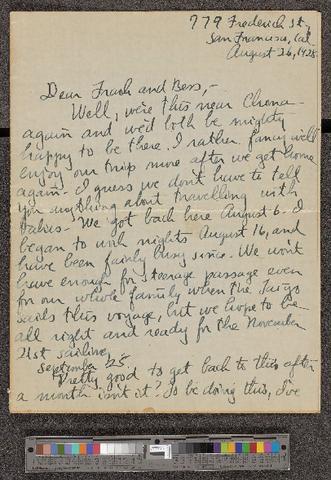 779 Frederick St.
San Francisco, Cal.
August 26, 1928.
Dear Frank and Bess,-
Well, we're this near China
again and we'd both be mighty
happy to be there. I rather fancy we'll
enjoy our trip more after we get home
again. I guess we don't have to tell
you anything about travelling with
babies. We got back here August 6. I
began to work nights August 16, and
have been fairly busy since. We won't
have enough for steerage passage even
for our whole family when the Taiyo
sails this voyage, but we hope to be
all right and ready for the November
21st sailing.
September 25
Pretty good to get back to this after
a month isn't it? To be doing this, I've